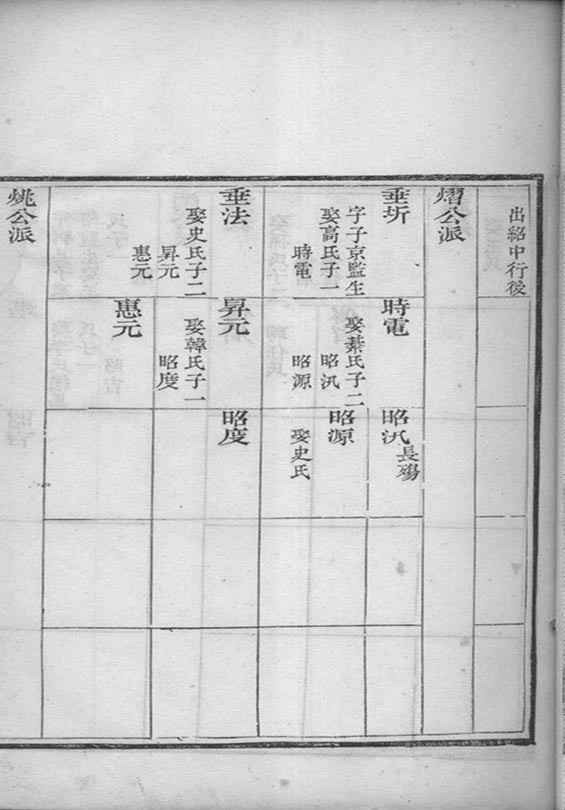 出紹中行後
熠公派
垂圻
字子京監生
娶高氏子一
時電
垂法
娶史氏子二
昇元
惠元
姚公派
時電
娶綦氏子二
昭汎
昭源
昇元
娶韓氏子一
昭度
惠元
昭汎
長殤
昭源
娶史氏
昭度